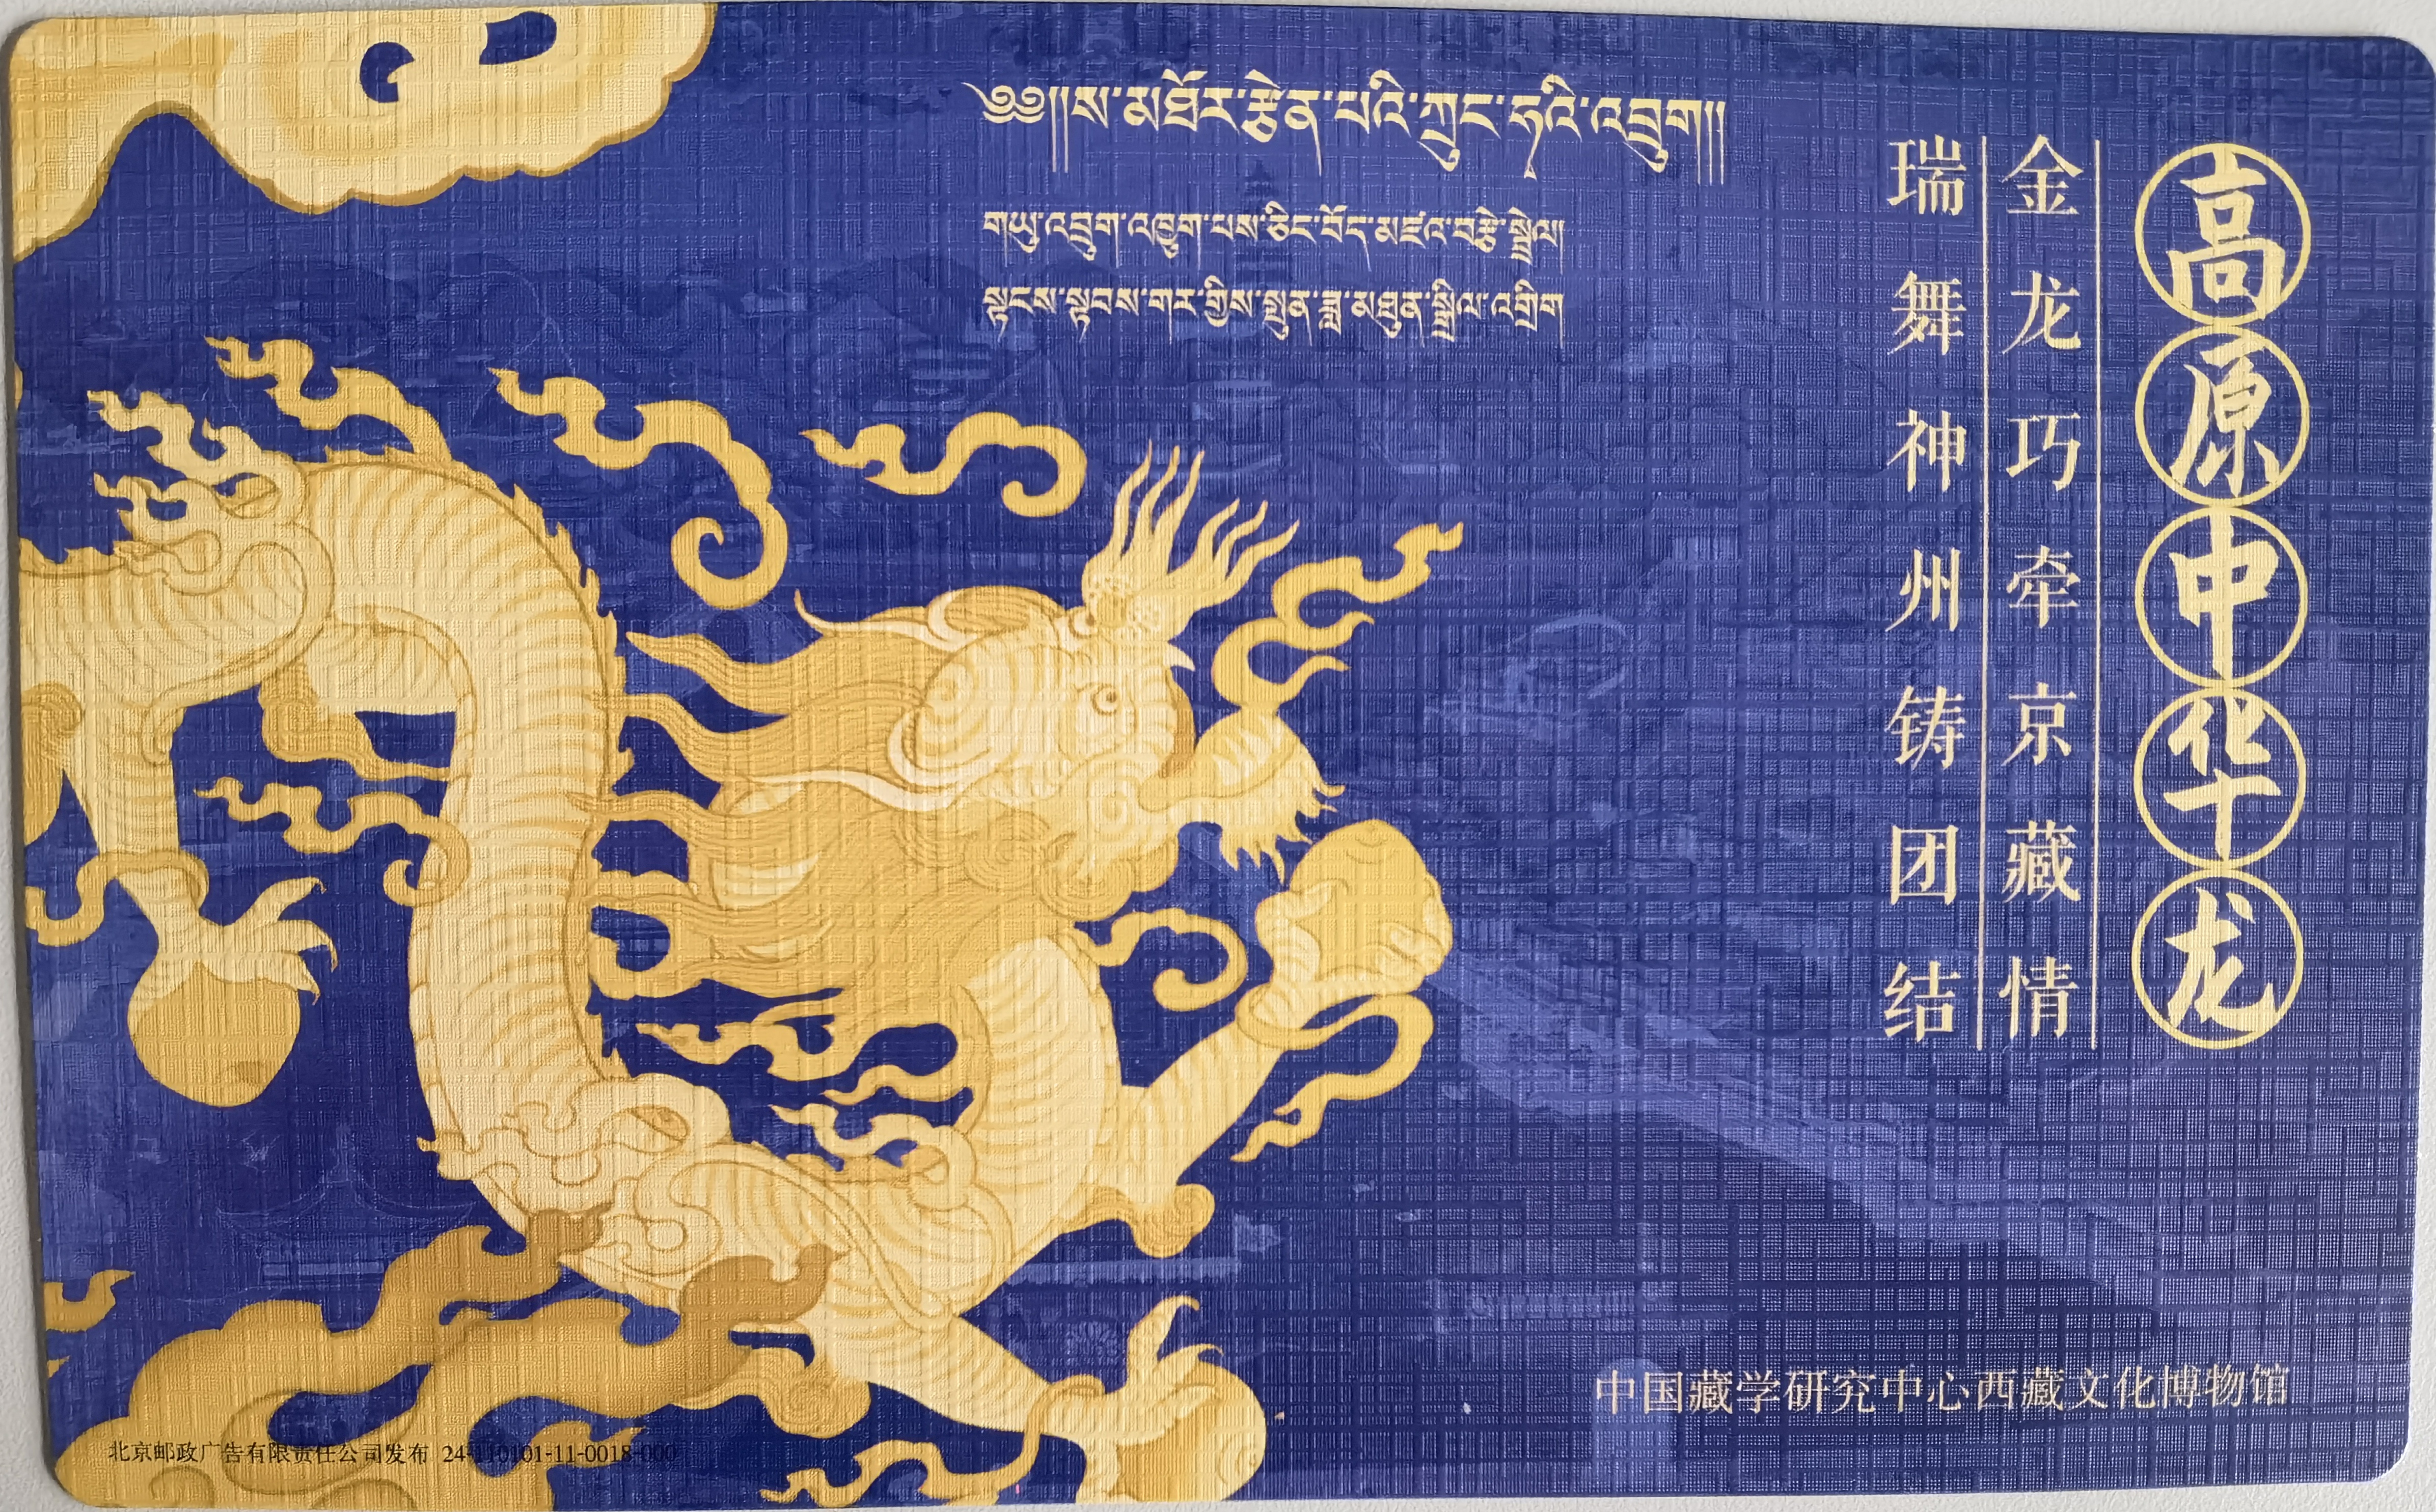 ༄༅།།ས་མཐོར་རྩེན་པའི་ཀྲུང་ཧྭའི་འབྲུག།།
གཡུ་འབྲུག་འཁྱུག་པས་ཅིང་བོད་མཛའ་བརྩེ་སྦྲེལ།
སྟངས་སྟབས་གར་གྱིས་སྤུན་ཟླ་མཐུན་སྒྲིལ་འགྲིག
高原中华龙
金龙巧牵京藏情
瑞舞神州铸团结
中国藏学研究中心西藏文化博物馆
北京邮政广告有限责任公司发布 24-110101-11-0018-000